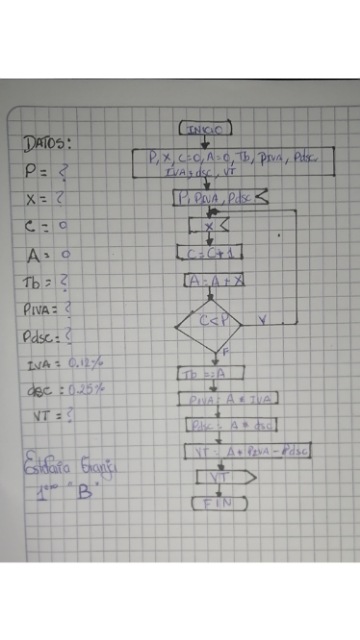 DATOS:
P = ?
X = ?
C = 0
A = 0
Tb = ?
PIVA = ?
Pdsc = ?
IVA = 0.12%
dsc = 0.25%
VT = ?
1ero "B"
INICIO
P, X, C=0, A=0, Tb, PIVA, Pdsc
IVA, dsc, VT
P, PIVA, Pdsc
X
C = C + 1
A = A + X
C < P
V
F
Tb == A
PIVA = A * IVA
Pdsc = A * dsc
VT = A + PIVA - Pdsc
VT
FIN